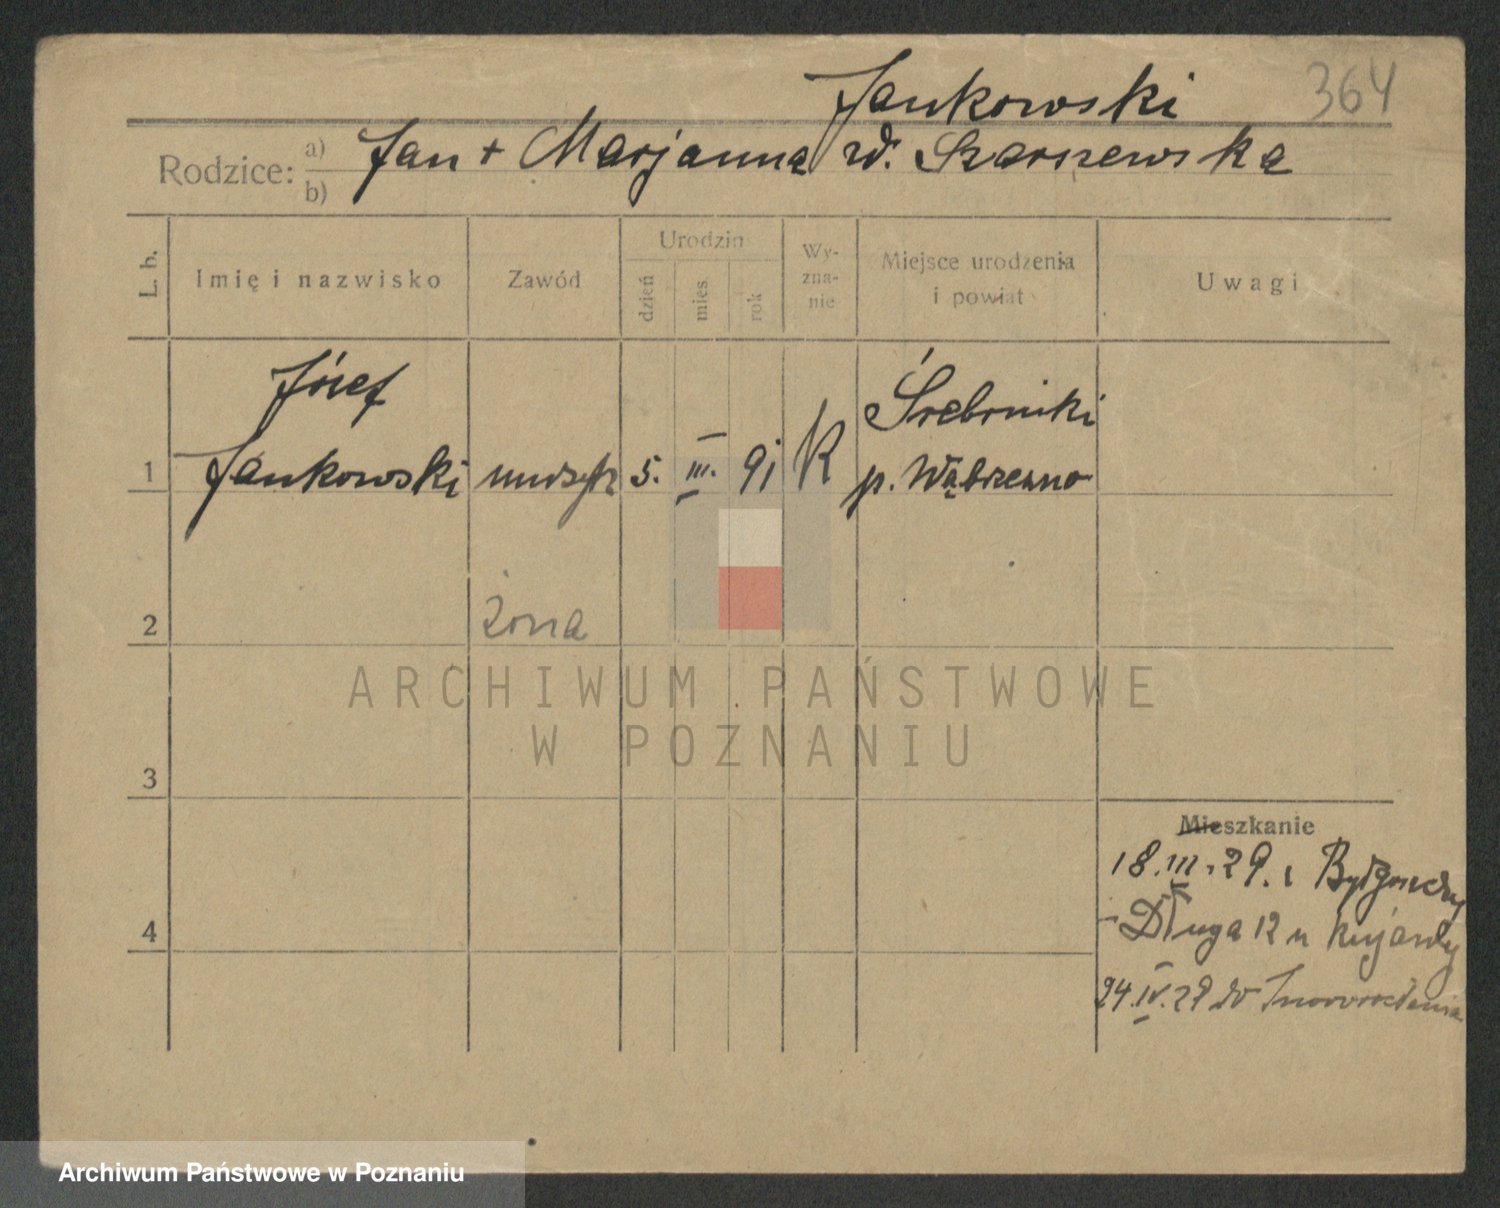 Jankowski 364
Rodzice: a) b) Jan + Marjanna zd. Szarszewska
L. b.
Imię i nazwisko
Zawód
Urodzin
dzień mies rok
Wy-
zna-
nie
Miejsce urodzenia
i powiat
Uwagi
Józef
1 Jankowski 5. III. 91 K Śrebrniki
p. Wąbrzeźno
2 żona
3
4
Mieszkanie
18.III.29. z Bydgoszczy
Długa 12 u
24.IV.29 do Inowrocławia
ARCHIWUM PAŃSTWOWE
W POZNANIU
Archiwum Państwowe w Poznaniu